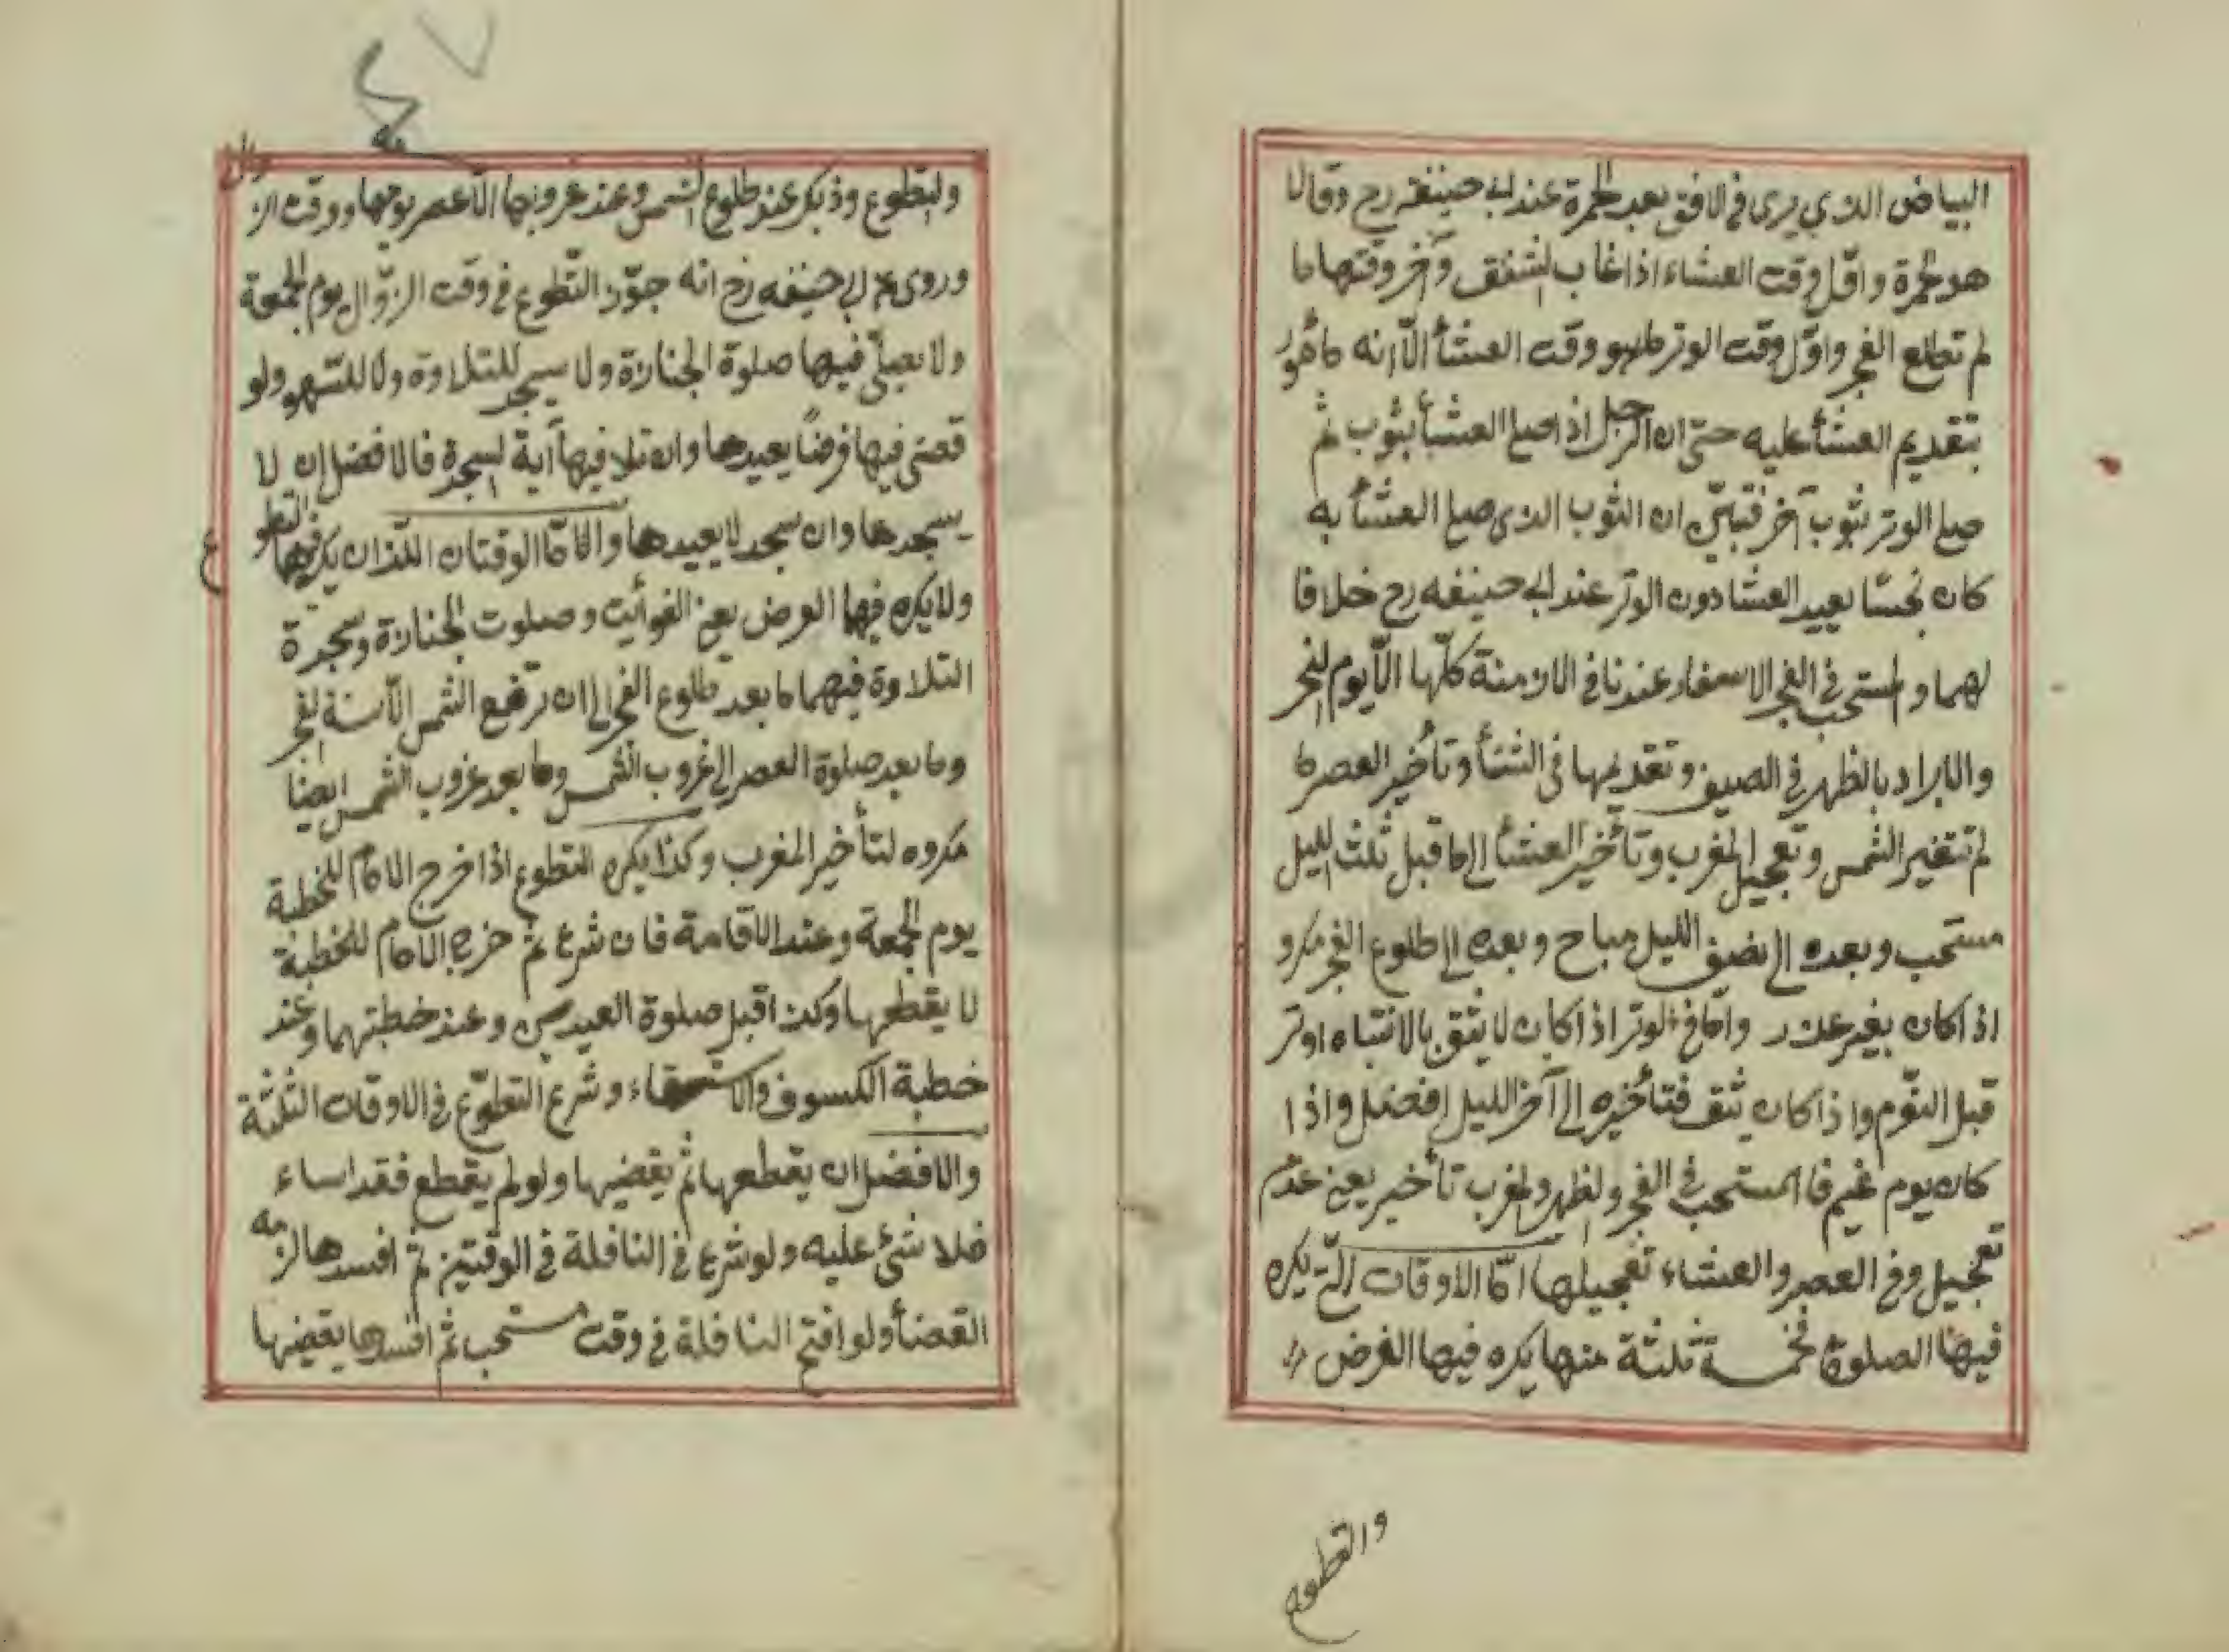 البياض الذي يرى في الافق بعد الحمرة عند ابي حنيفة رح وقالا
هو الحمرة واوّل وقت العشاء اذا غاب الشفق وآخر وقتها ما
لم تطلع الفجر واوّل وقت الوتر ما هو وقت العشأ الّا انه مأمور
بتقديم العشأ عليه حتى ان الرجل اذا صلى العشأ بثوب ثم
صلى الوتر بثوب آخر فتبيّن ان الثوب الذي صلى العشأ به
كان نجسًا يعيد العشا دون الوتر عند ابي حنيفه رح خلافا
لهما والمستحب في الفجر الاسفار عندنا في الازمنة كلّها الّا يوم النحر
والابراد بالظهر في الصيف وتقديمها في الشتأ وتأخير العصر ما
لم تتغير الشمس وتعجيل المغرب وتأخير العشأ الى ما قبل ثلث الليل
مستحب وبعده الى نصف الليل مباح وبعده الى طلوع الفجر مكرو
اذا كان بغير عذر وامّا في الوتر اذا كان لا يثق بالانتباه اوتر
قبل النّوم واذا كان يثق فتأخيره الى آخر الليل افضل واذا
كان يوم غيم فالمستحب في الفجر والظهر والمغرب تأخير يعني عدم
تعجيل وفي العصر والعشاء تعجيلها امّا الاوقات التي يكره
فيها الصلوة فخمسة ثلثة منها يكره فيها الفرض
والتطوع
والتطوع وذلك عند طلوع الشمس وعند غروبها الّا عصر يومها ووقت الز
وال
وروى عن ابي حنيفه رح انه جوّز التّطوع في وقت الزّوال يوم الجمعة
ولا يصلّى فيها صلوة الجنازة ولا سيجد للتلاوة ولا للسّهو ولو
قضى فيها فرضًا يعيدها وان تلا فيها آية السجدة فالافضل ان لا
يسجدها وان سجد لا يعيدها والامّا الوقتان اللّذان يكره فيهما التطو
ع
ولا يكره فيهما الفرض يعني الفوائت وصلوت الجنازة وسجدة
التلاوة فيهما ما بعد طلوع الفجر الى ان ترتفع الشمس الّا سنة الفجر
وما بعد صلوة العصر الى غروب الشمس وما بعد غروب الشمس ايضا
مكروه لتأخير المغرب وكذا يكره التطوع اذا خرج الامام للخطبة
يوم الجمعة وعند الاقامة فان شرع ثم خرج الامام للخطبة
لا يقطعها وكذا قبل صلوة العيدين وعند خطبتهما وعند
خطبة الكسوف والاستسقاء وشرع التطوّع في الاوقات الثلثة
والافضل ان يقطعها ثم يقضيها ولو لم يقطع فقد اساء
فلا شئ عليه ولو شرع في النافلة في الوقتين ثم افسدها لزمه
القضأ ولو افتتح النافلة في وقت مستحب ثم افسدها يقضيها